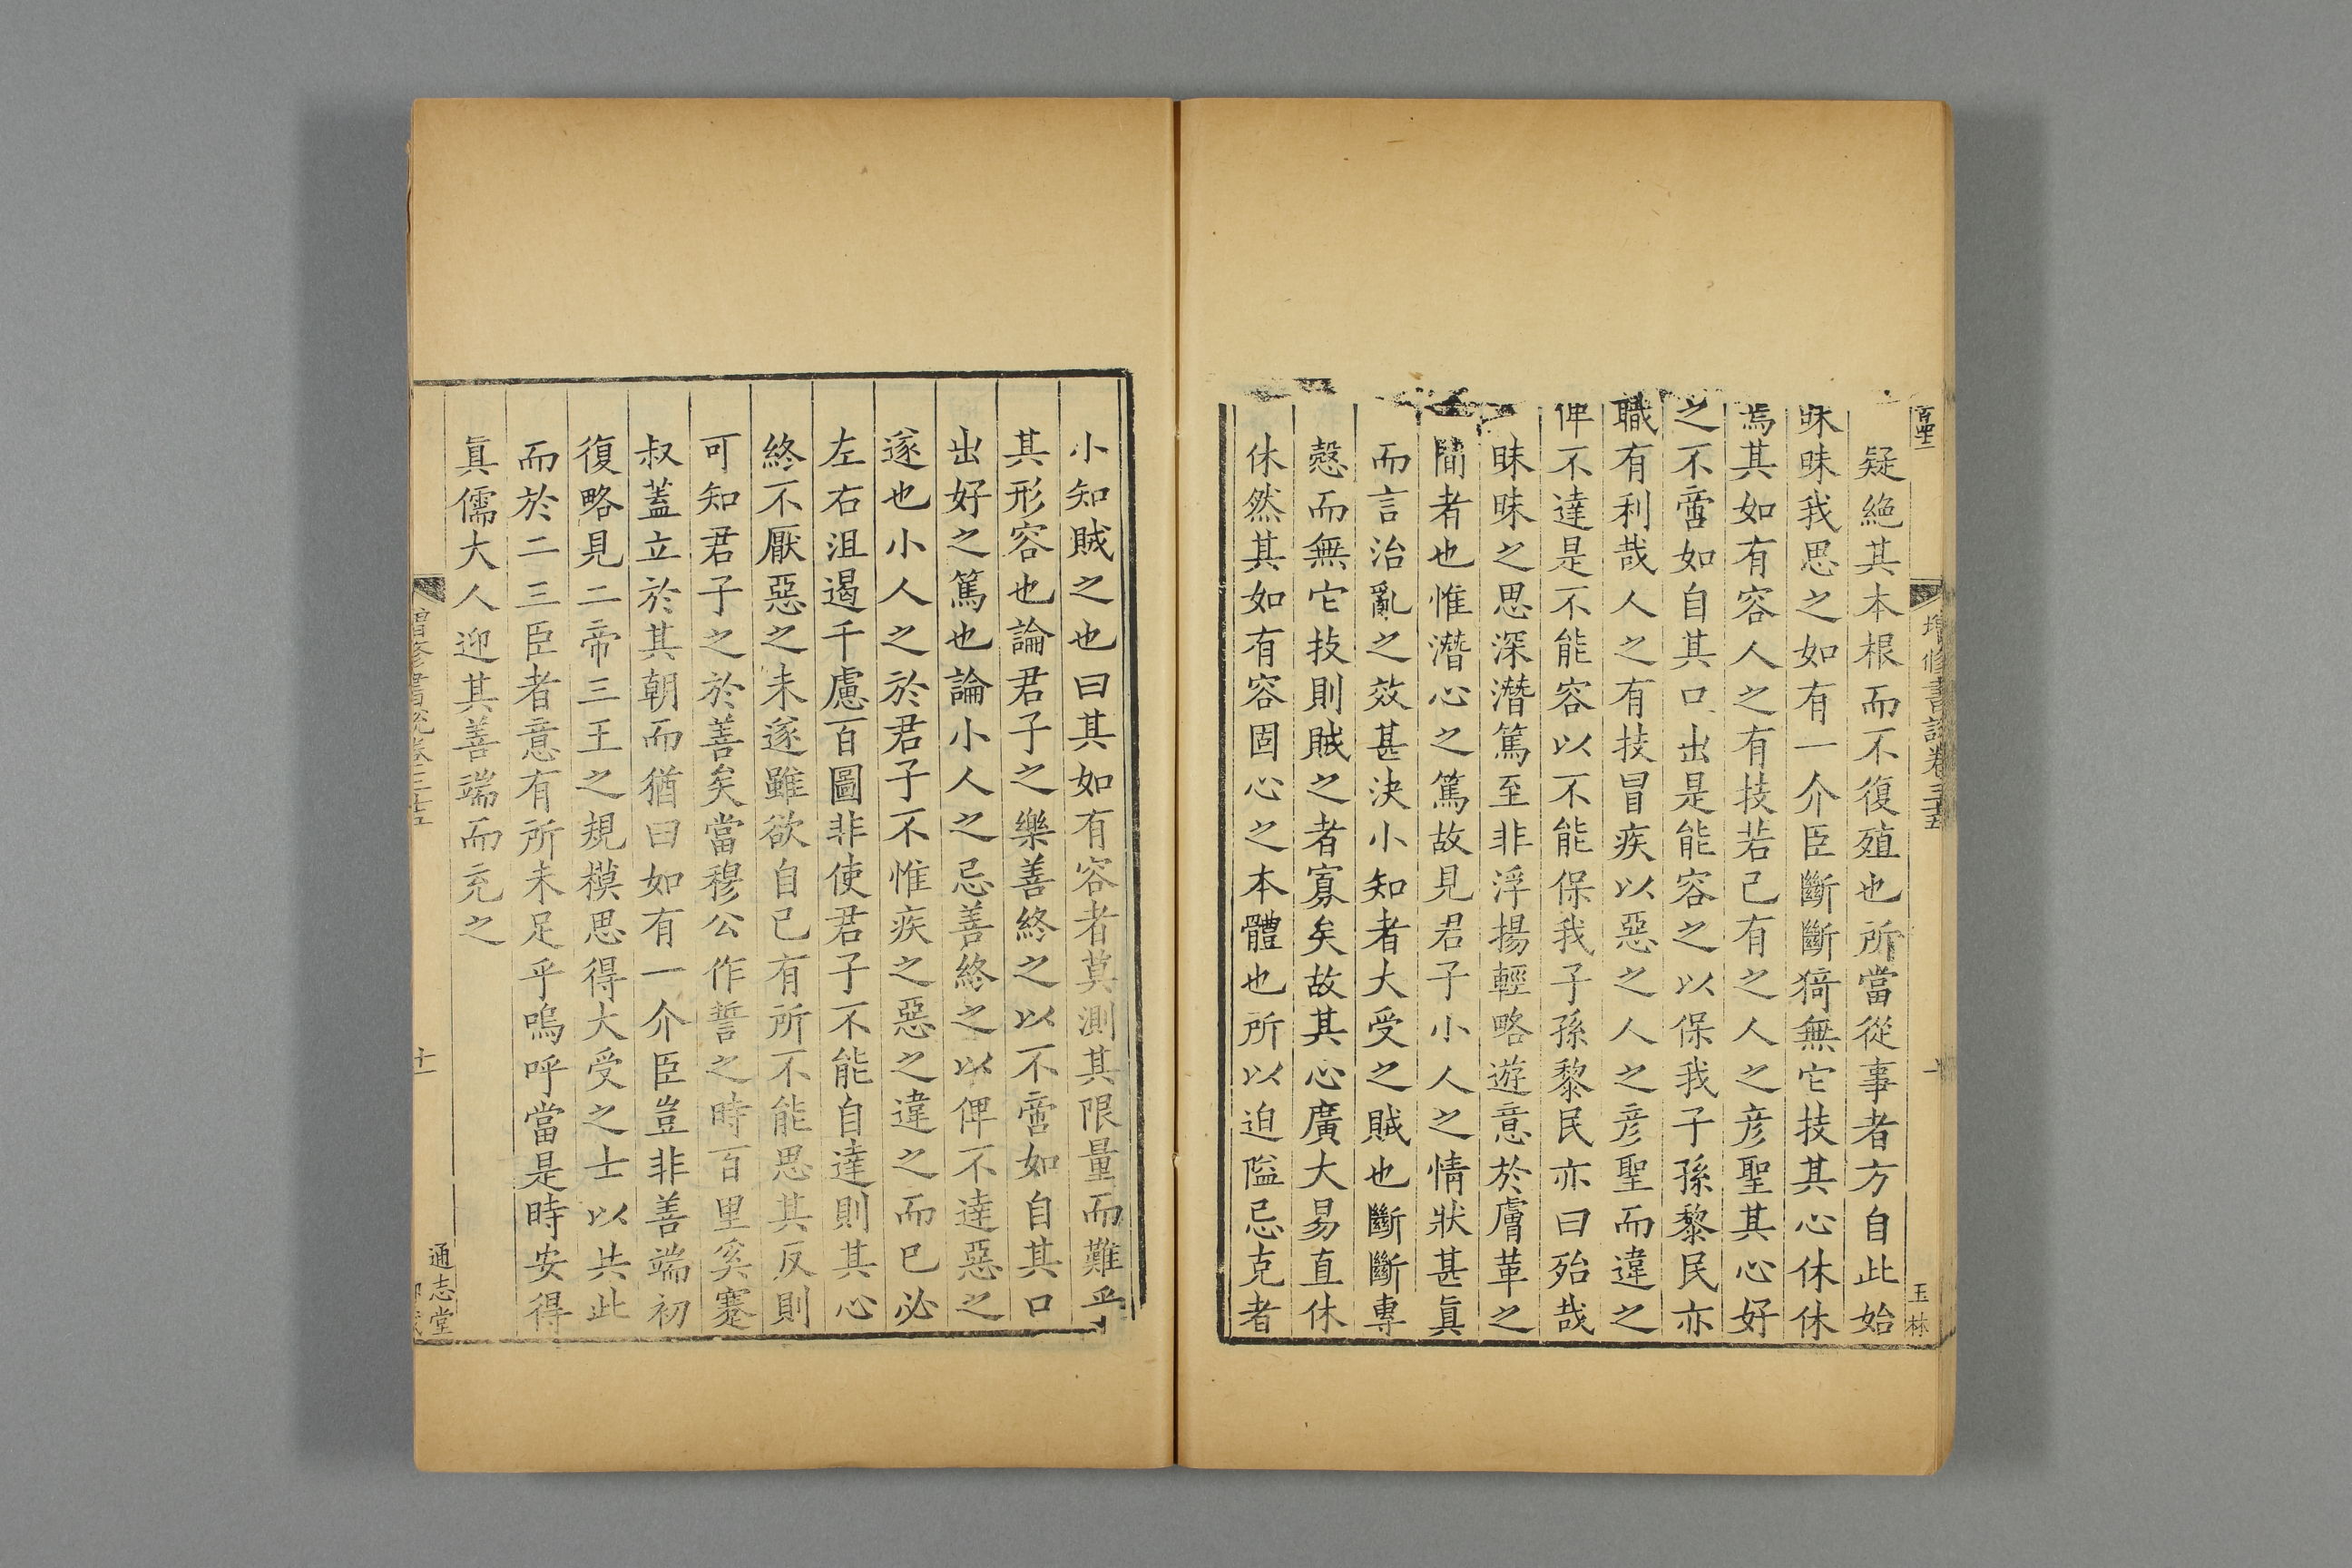 增修書說卷三十五
玉林
疑絕其本根而不復殖也所當從事者方自此始
昧昧我思之如有一介臣斷斷猗無它技其心休休
焉其如有容人之有技若己有之人之彥聖其心好
之不啻如自其口出是能容之以保我子孫黎民亦
職有利哉人之有技冒疾以惡之人之彥聖而違之
俾不達是不能容以不能保我子孫黎民亦曰殆哉
昧昧之思深潛篤至非浮揚輕略遊意於膚革之
間者也惟潛心之篤故見君子小人之情狀甚真
而言治亂之效甚決小知者大受之賊也斷斷專
慤而無它技則賊之者寡矣故其心廣大易直休
休然其如有容固心之本體也所以迫隘忌克者
小知賊之也曰其如有容者莫測其限量而難乎
其形容也論君子之樂善終之以不啻如自其口
出好之篤也論小人之忌善終之以俾不達惡之
遂也小人之於君子不惟疾之惡之違之而已必
左右沮遏千慮百圖非使君子不能自達則其心
終不厭惡之未遂雖欲自已有所不能思其反則
可知君子之於善矣當穆公作誓之時百里奚蹇
叔蓋立於其朝而猶曰如有一介臣豈非善端初
復略見二帝三王之規模思得大受之士以共此
而於二三臣者意有所未足乎嗚呼當是時安得
真儒大人迎其善端而充之
增修書說卷三十五
十一
通志堂